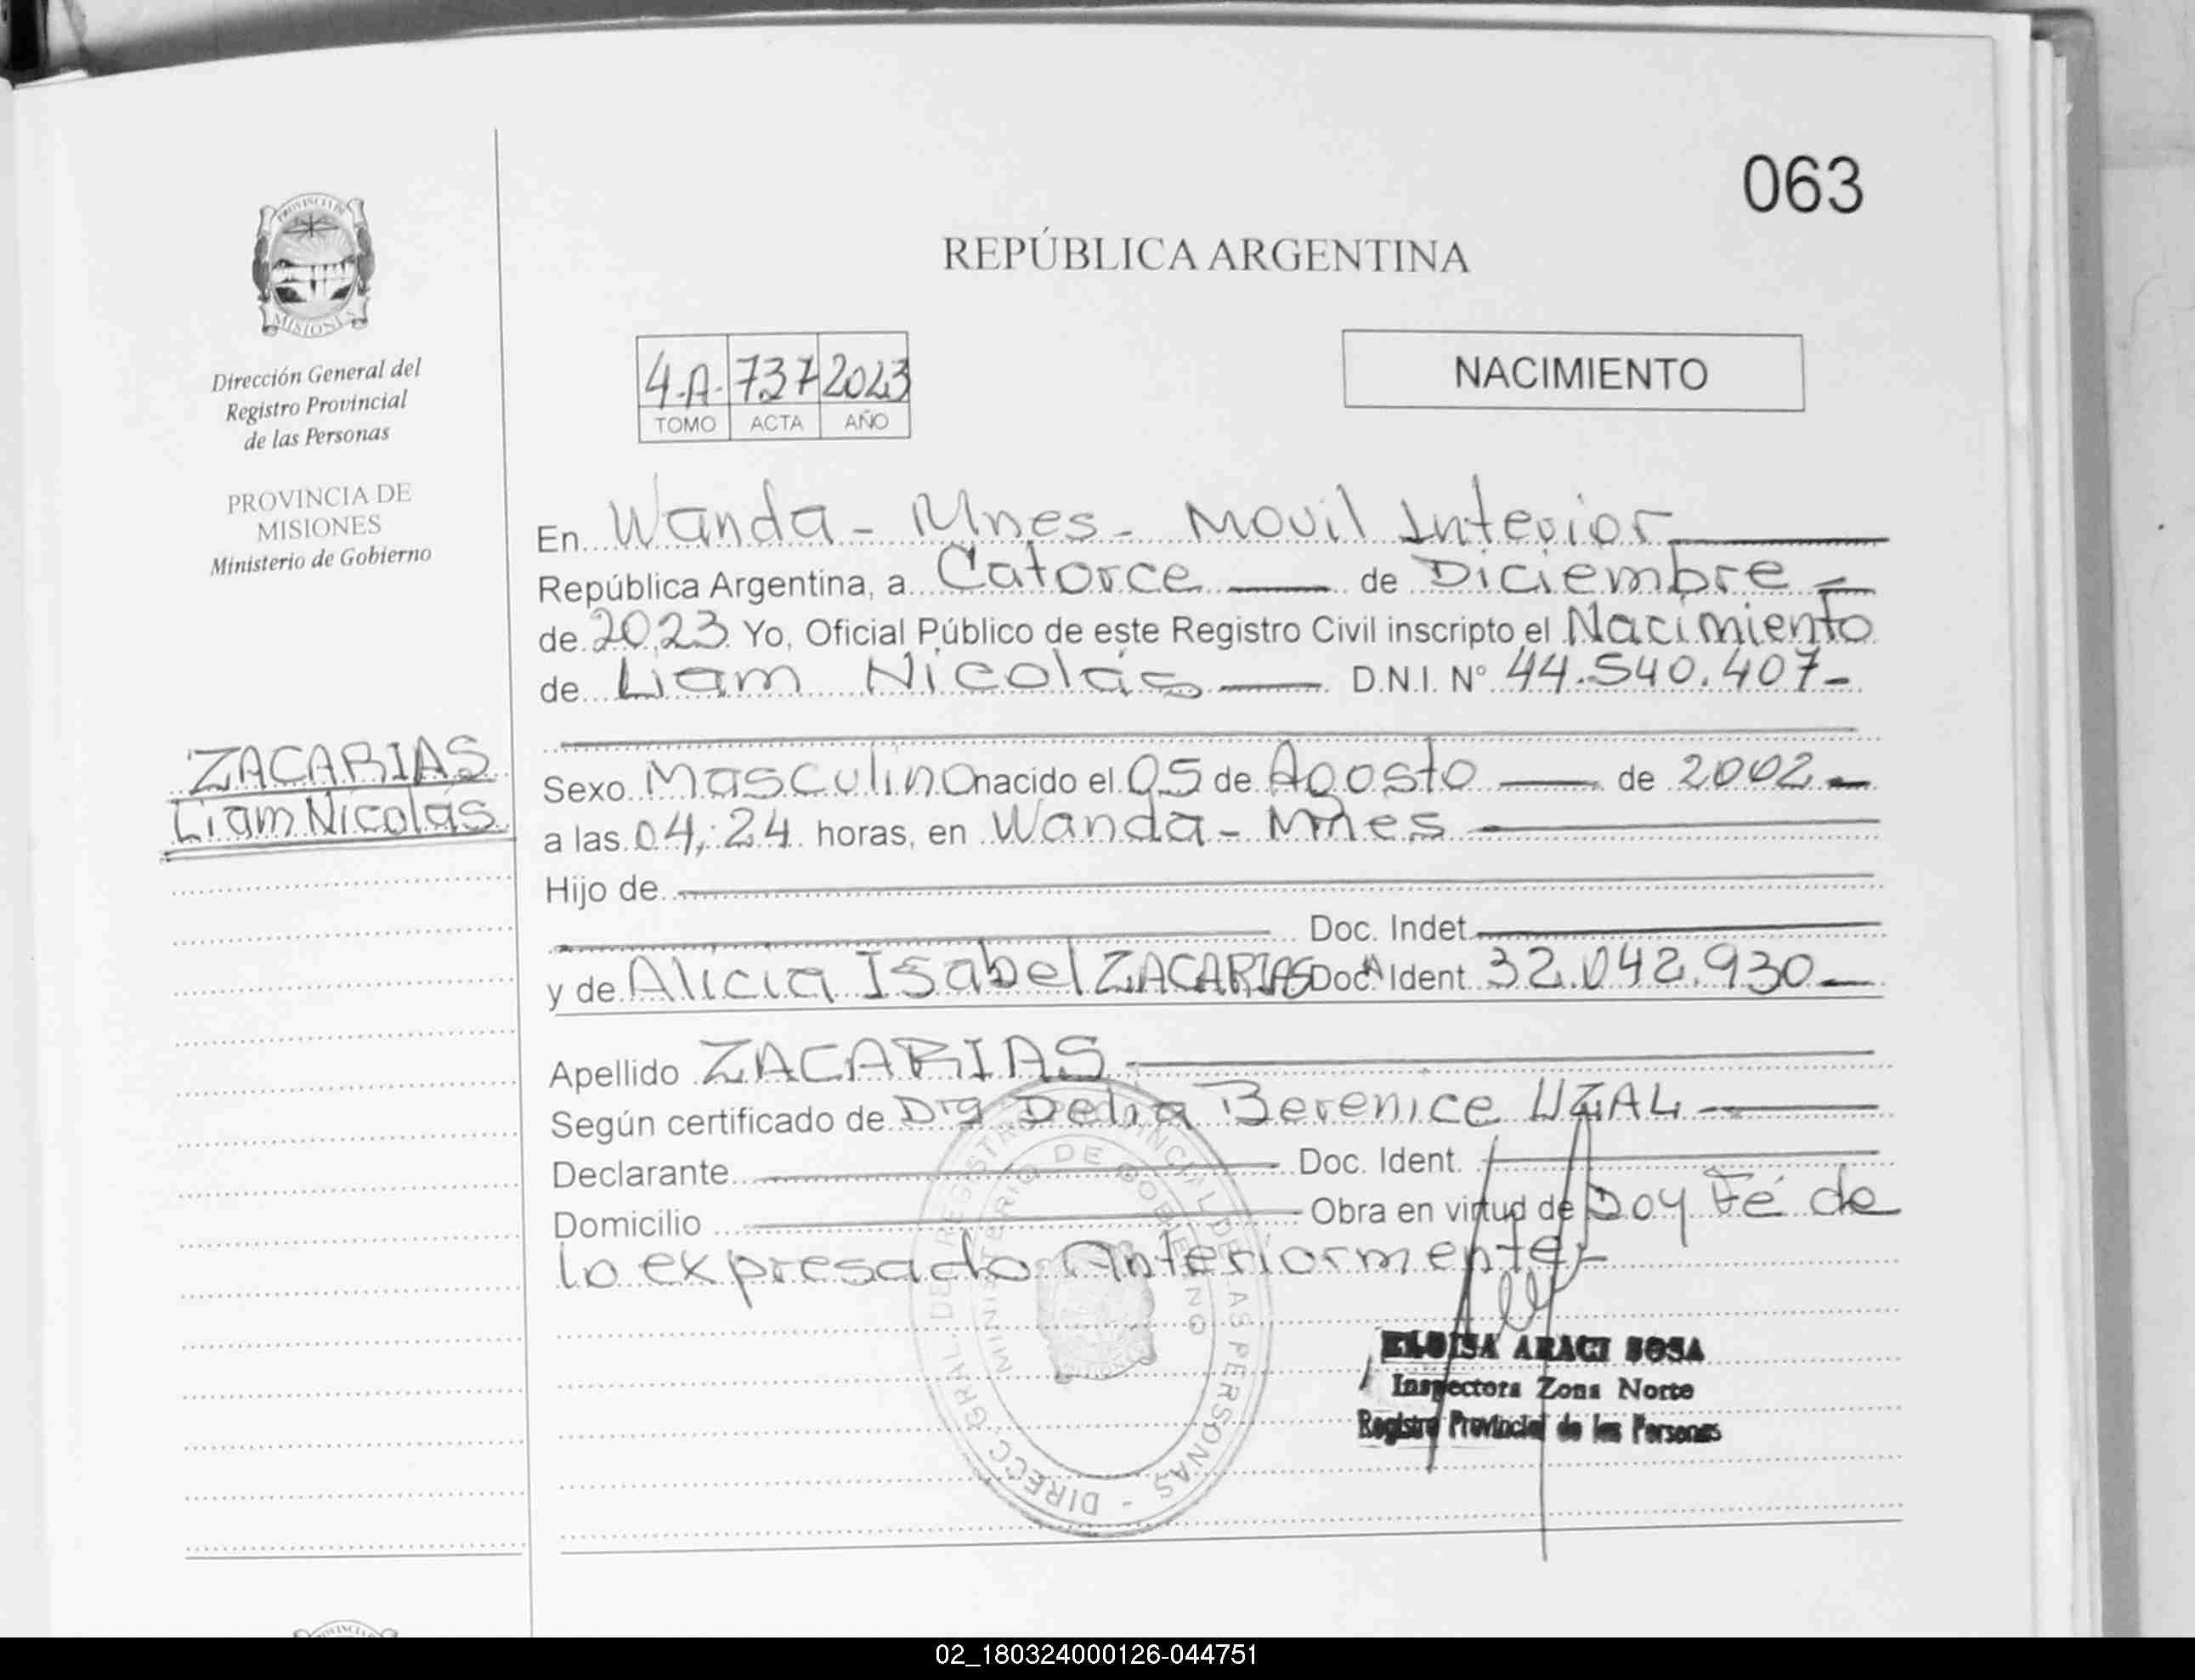 063
REPÚBLICA ARGENTINA
PROVINCIA DE
MISIONES
Dirección General del
Registro Provincial
de las Personas
PROVINCIA DE
MISIONES
Ministerio de Gobierno
ZACARIAS
Liam Nicolás
4-A- 737 2023
TOMO ACTA AÑO
NACIMIENTO
En Wanda - Mnes - Movil Interior
República Argentina, a Catorce de Diciembre
de 2023 Yo, Oficial Público de este Registro Civil inscripto el Nacimiento
de Liam Nicolás D.N.I. N° 44.540.407-
Sexo Masculino nacido el 05 de Agosto de 2002
a las 04:24 horas, en Wanda - Mnes
Hijo de
Doc. Indet.
y de Alicia Isabel ZACARIAS Doc. Ident. 32.042.930
Apellido ZACARIAS
Según certificado de Dra Delia Berenice UZAL
Declarante Doc. Ident.
Domicilio Obra en virtud de Doy Fé de
lo expresado Anteriormente
DIRECC. GRAL. DEL REGISTRO PROVINCIAL DE LAS PERSONAS -
MINISTERIO DE GOBIERNO
ELOISA ARACI SOSA
Inspectora Zona Norte
Registro Provincial de las Personas
02_180324000126-044751